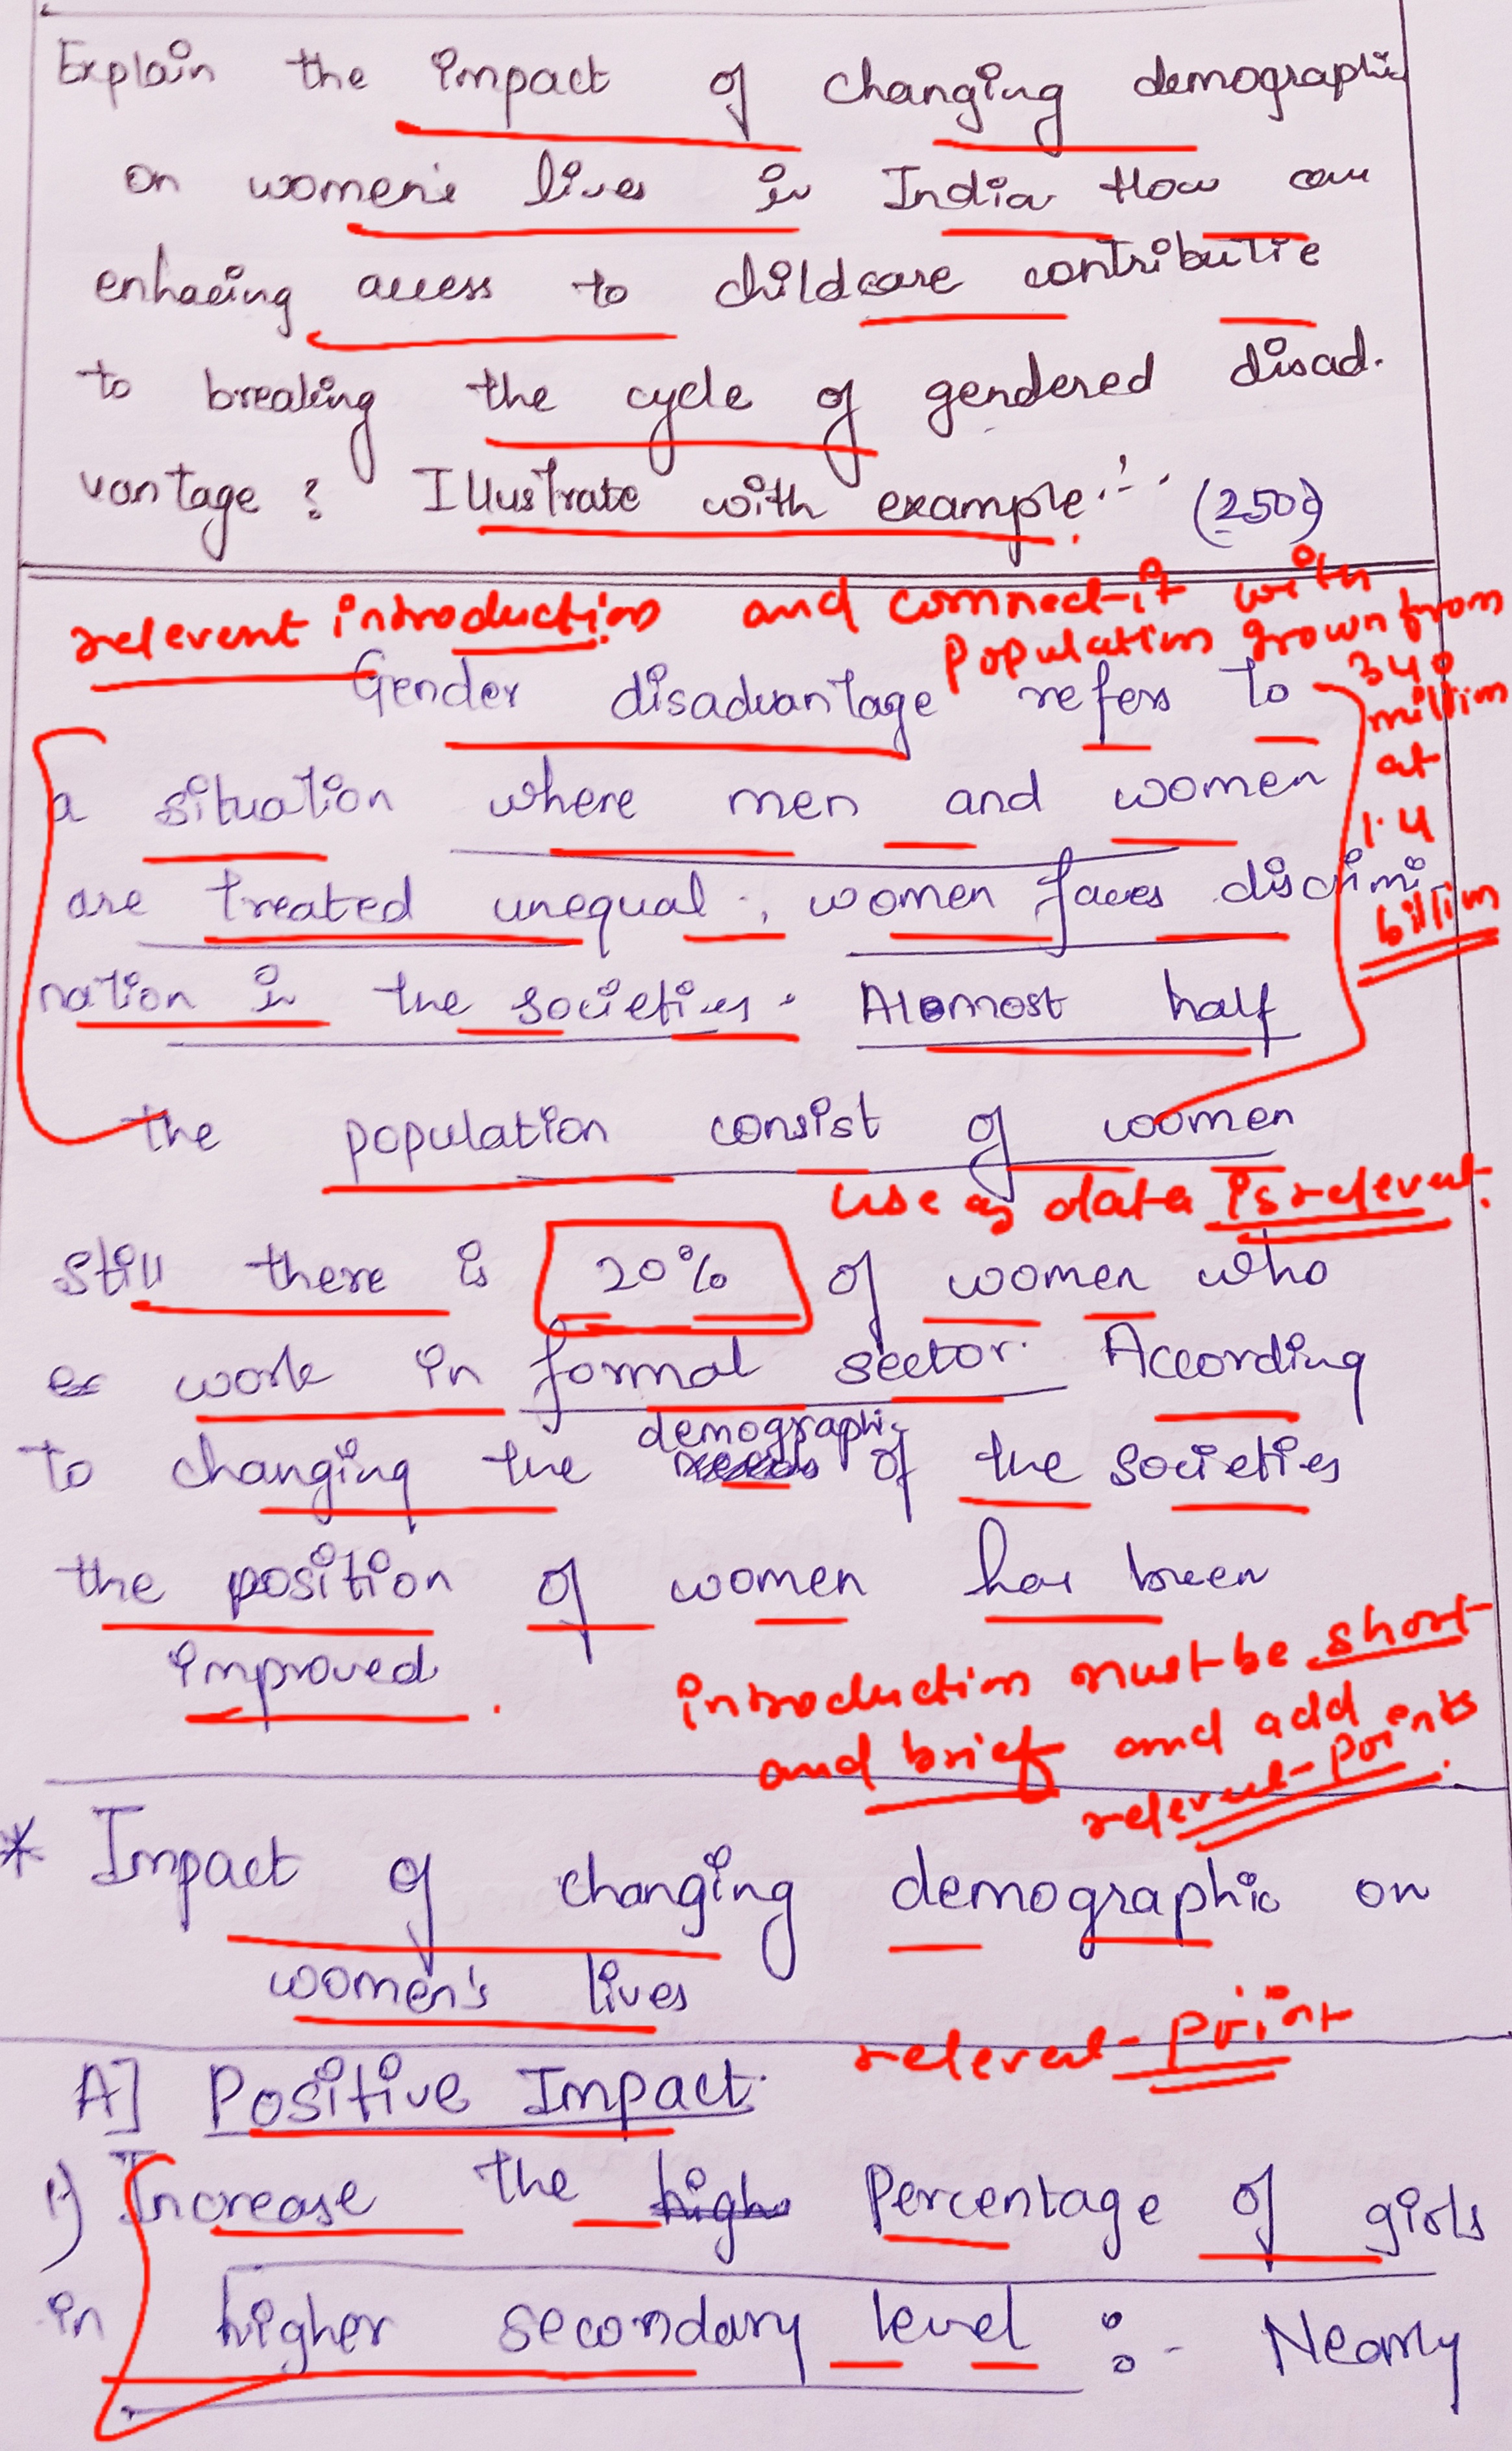 Explain the impact of changing demographic
on women's lives in India How can
enhacing access to childcare contributie
to breaking the cycle of gendered disad.
vantage? Illustrate with example.'- (250)
relevent introduction and connect it with
population grown from
340
million
at
1.4
billion
Gender disadvantage refers to
a situation where men and women
are treated unequal , women faces discrimi-
nation in the societies. Alomost half
the population consist of women
use of data is relevent.
still there is 20% of women who
work in formal sector. According
demographic
to changing the of the societies
the position of women has been
improved
introduction must be short
and brief and add
relevent points
* Impact of changing demographic on
women's lives
relevent point
A] Positive Impact.
1) Increase the high Percentage of girls
in higher secondary level :- Nearly